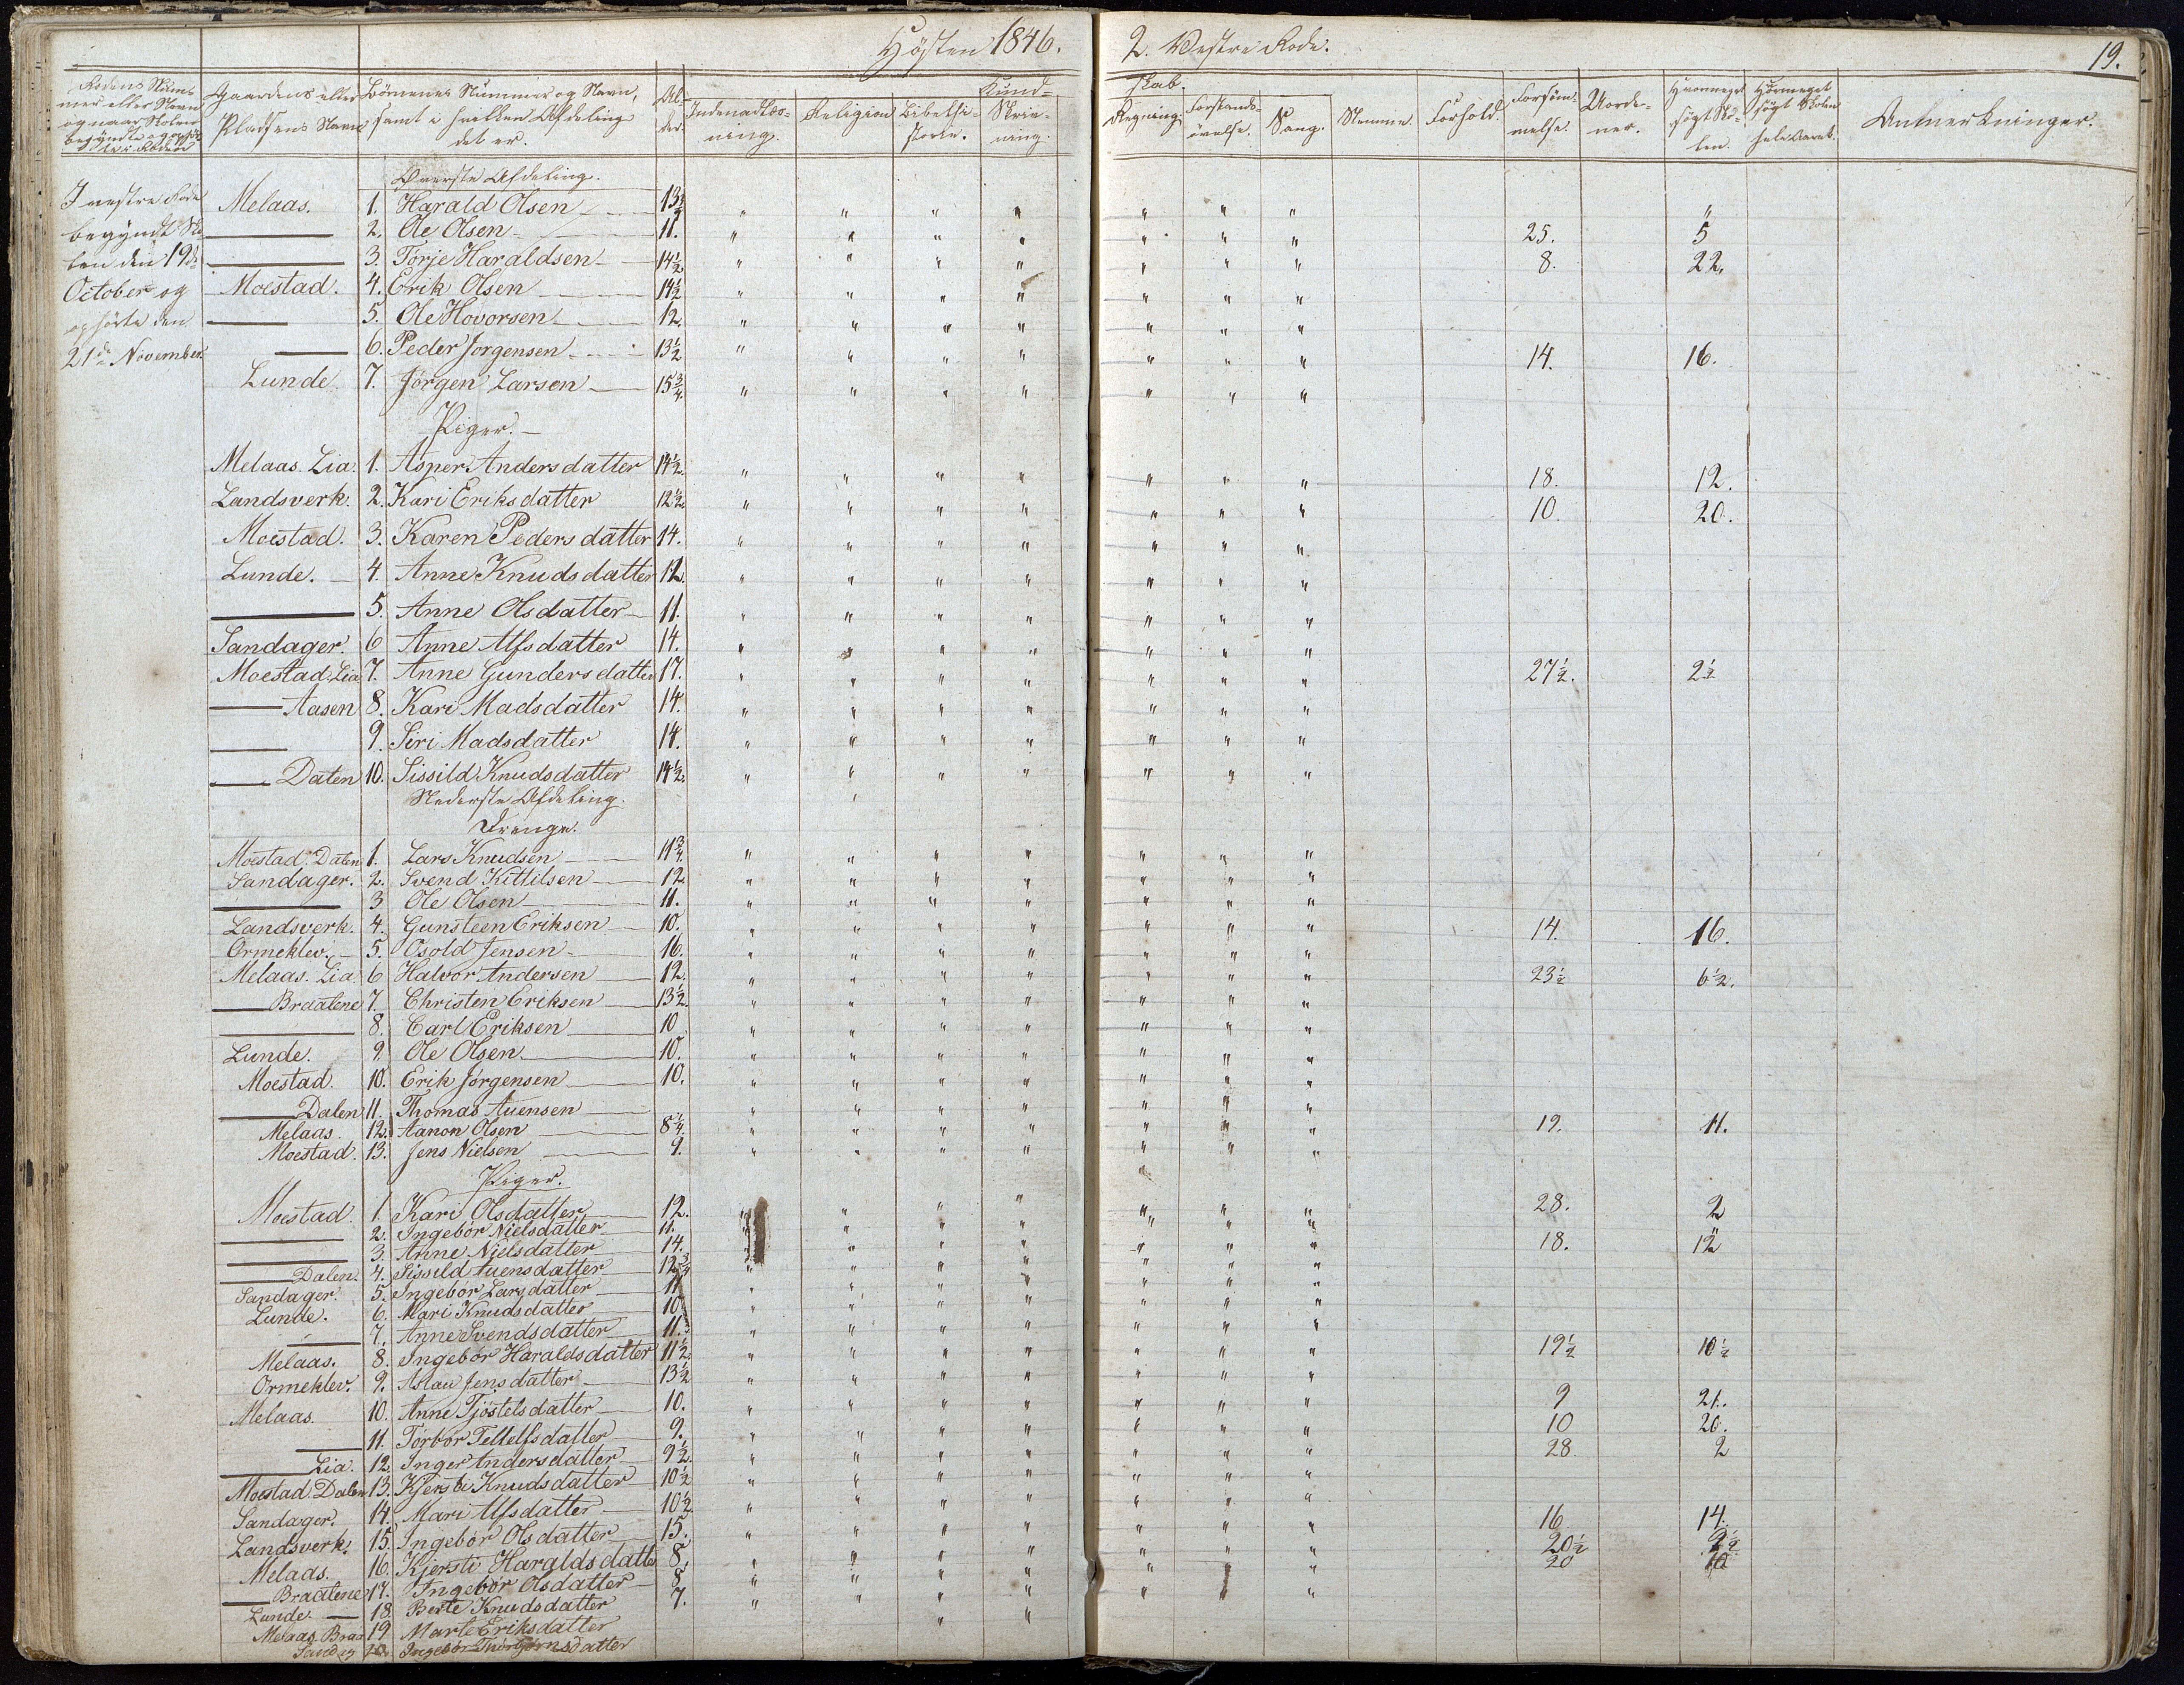 Høsten 1846.
2. Vestre Rode.
19.
Rodens Num-
mer eller Navn
og naar Skolen
begyndte og
Gaardens eller
Pladsens Navn
Børnenes Nummer og Navn,
samt i hvilken Afdeling
det er.
Al-
der.
Kund-
skab.
Indenadlæs-
ning.
Religion
Bibelhi-
storie.
Skriv-
ning.
Regning.
Forstands-
øvelse.
Sang.
Stemme.
Forhold.
Forsøm-
melse.
Uorde-
ner.
Hvormeget
søgt Sko-
len.
Hvormeget
søgt Skolen
hele Aaret.
Anmerkninger.
I vestre Rode
begyndt Sko-
len den 19de
October og
ophørte den
21de November.
Øverste Afdeling.
Melaas. 1. Harald Olsen 13½ "
— 2. Ole Olsen 11. 25. 5
— 3. Torje Haraldsen 14½ 8. 22.
Moestad. 4. Erik Olsen 14½
— 5. Ole Hovorsen 12.
— 6. Peder Jorgensen 13½ 14. 16.
Lunde. 7. Jörgen Larsen 15¾.
Piger.
Melaas. Lia. 1. Asper Andersdatter 14½. 18. 12.
Landsverk. 2. Kari Eriksdatter 12½ 10. 20.
Moestad. 3. Karen Pedersdatter 14.
Lunde. 4. Anne Knudsdatter 12.
— 5. Anne Olsdatter 11.
Sandager. 6 Anne Alfsdatter 14.
Moestad. Lia 7. Anne Gundersdatter 17. 27½. 2½
— Aasen 8. Kari Madsdatter 14.
— 9. Siri Madsdatter 14.
— Dalen 10. Sissild Knudsdatter 14½.
Nederste Afdeling.
Drenge.
Moestad. Dalen 1. Lars Knudsen 11¾.
Sandager. 2. Svend Kittilsen 12.
— 3 Ole Olsen 11.
Landsverk. 4. Gunsteen Eriksen 10. 14. 16.
Ormeklev. 5. Osold Jensen 16.
Melaas. Lia 6 Halvor Andersen 12. 23½ 6½.
— Braatene 7. Christen Eriksen 13½.
— 8. Carl Eriksen 10
Lunde. 9. Ole Olsen 10.
Moestad. 10. Erik Jørgensen 10.
— Dalen 11. Thomas Auensen
Melaas. 12. Aanon Olsen 8¼. 19. 11.
Moestad. 13. Jens Nielsen 9.
Piger.
Moestad. 1. Kari Olsdatter 12. 28. 2
— 2. Ingebor Nielsdatter 11.
— 3. Anne Nielsdatter 14. 18. 12
— Dalen. 4. Sissild Auensdatter 12¾
Sandager. 5. Ingebor Larsdatter 11
Lunde. 6. Mari Knudsdatter 10
— 7. Anne Svendsdatter 11.
Melaas. 8. Ingebor Haraldsdatter 11½. 19½ 10½
Ormeklev. 9. Aslau Jensdatter 13½
Melaas. 10. Anne Tjöstelsdatter 10. 9 21.
— 11. Torbor Tellefsdatter 9. 10 20.
— Lia. 12. Inger Andersdatter 9½. 28 2
Moestad. Dalen 13. Kjersti Knudsdatter 10½
Sandager. 14. Mari Alfsdatter 10½.
Landsverk. 15. Ingebor Olsdatter 15. 16 14.
Melaas. 16. Kjersti Haraldsdatter 8. 20½ 9½
— Braatene 17. Ingebor Olsdatter 8 20 10
Lunde. — 18. Berte Knudsdatter 7.
Melaas. Braa 19 Marte Eriksdatter
Sandag 20. Ingebor Thorbjørnsdatter